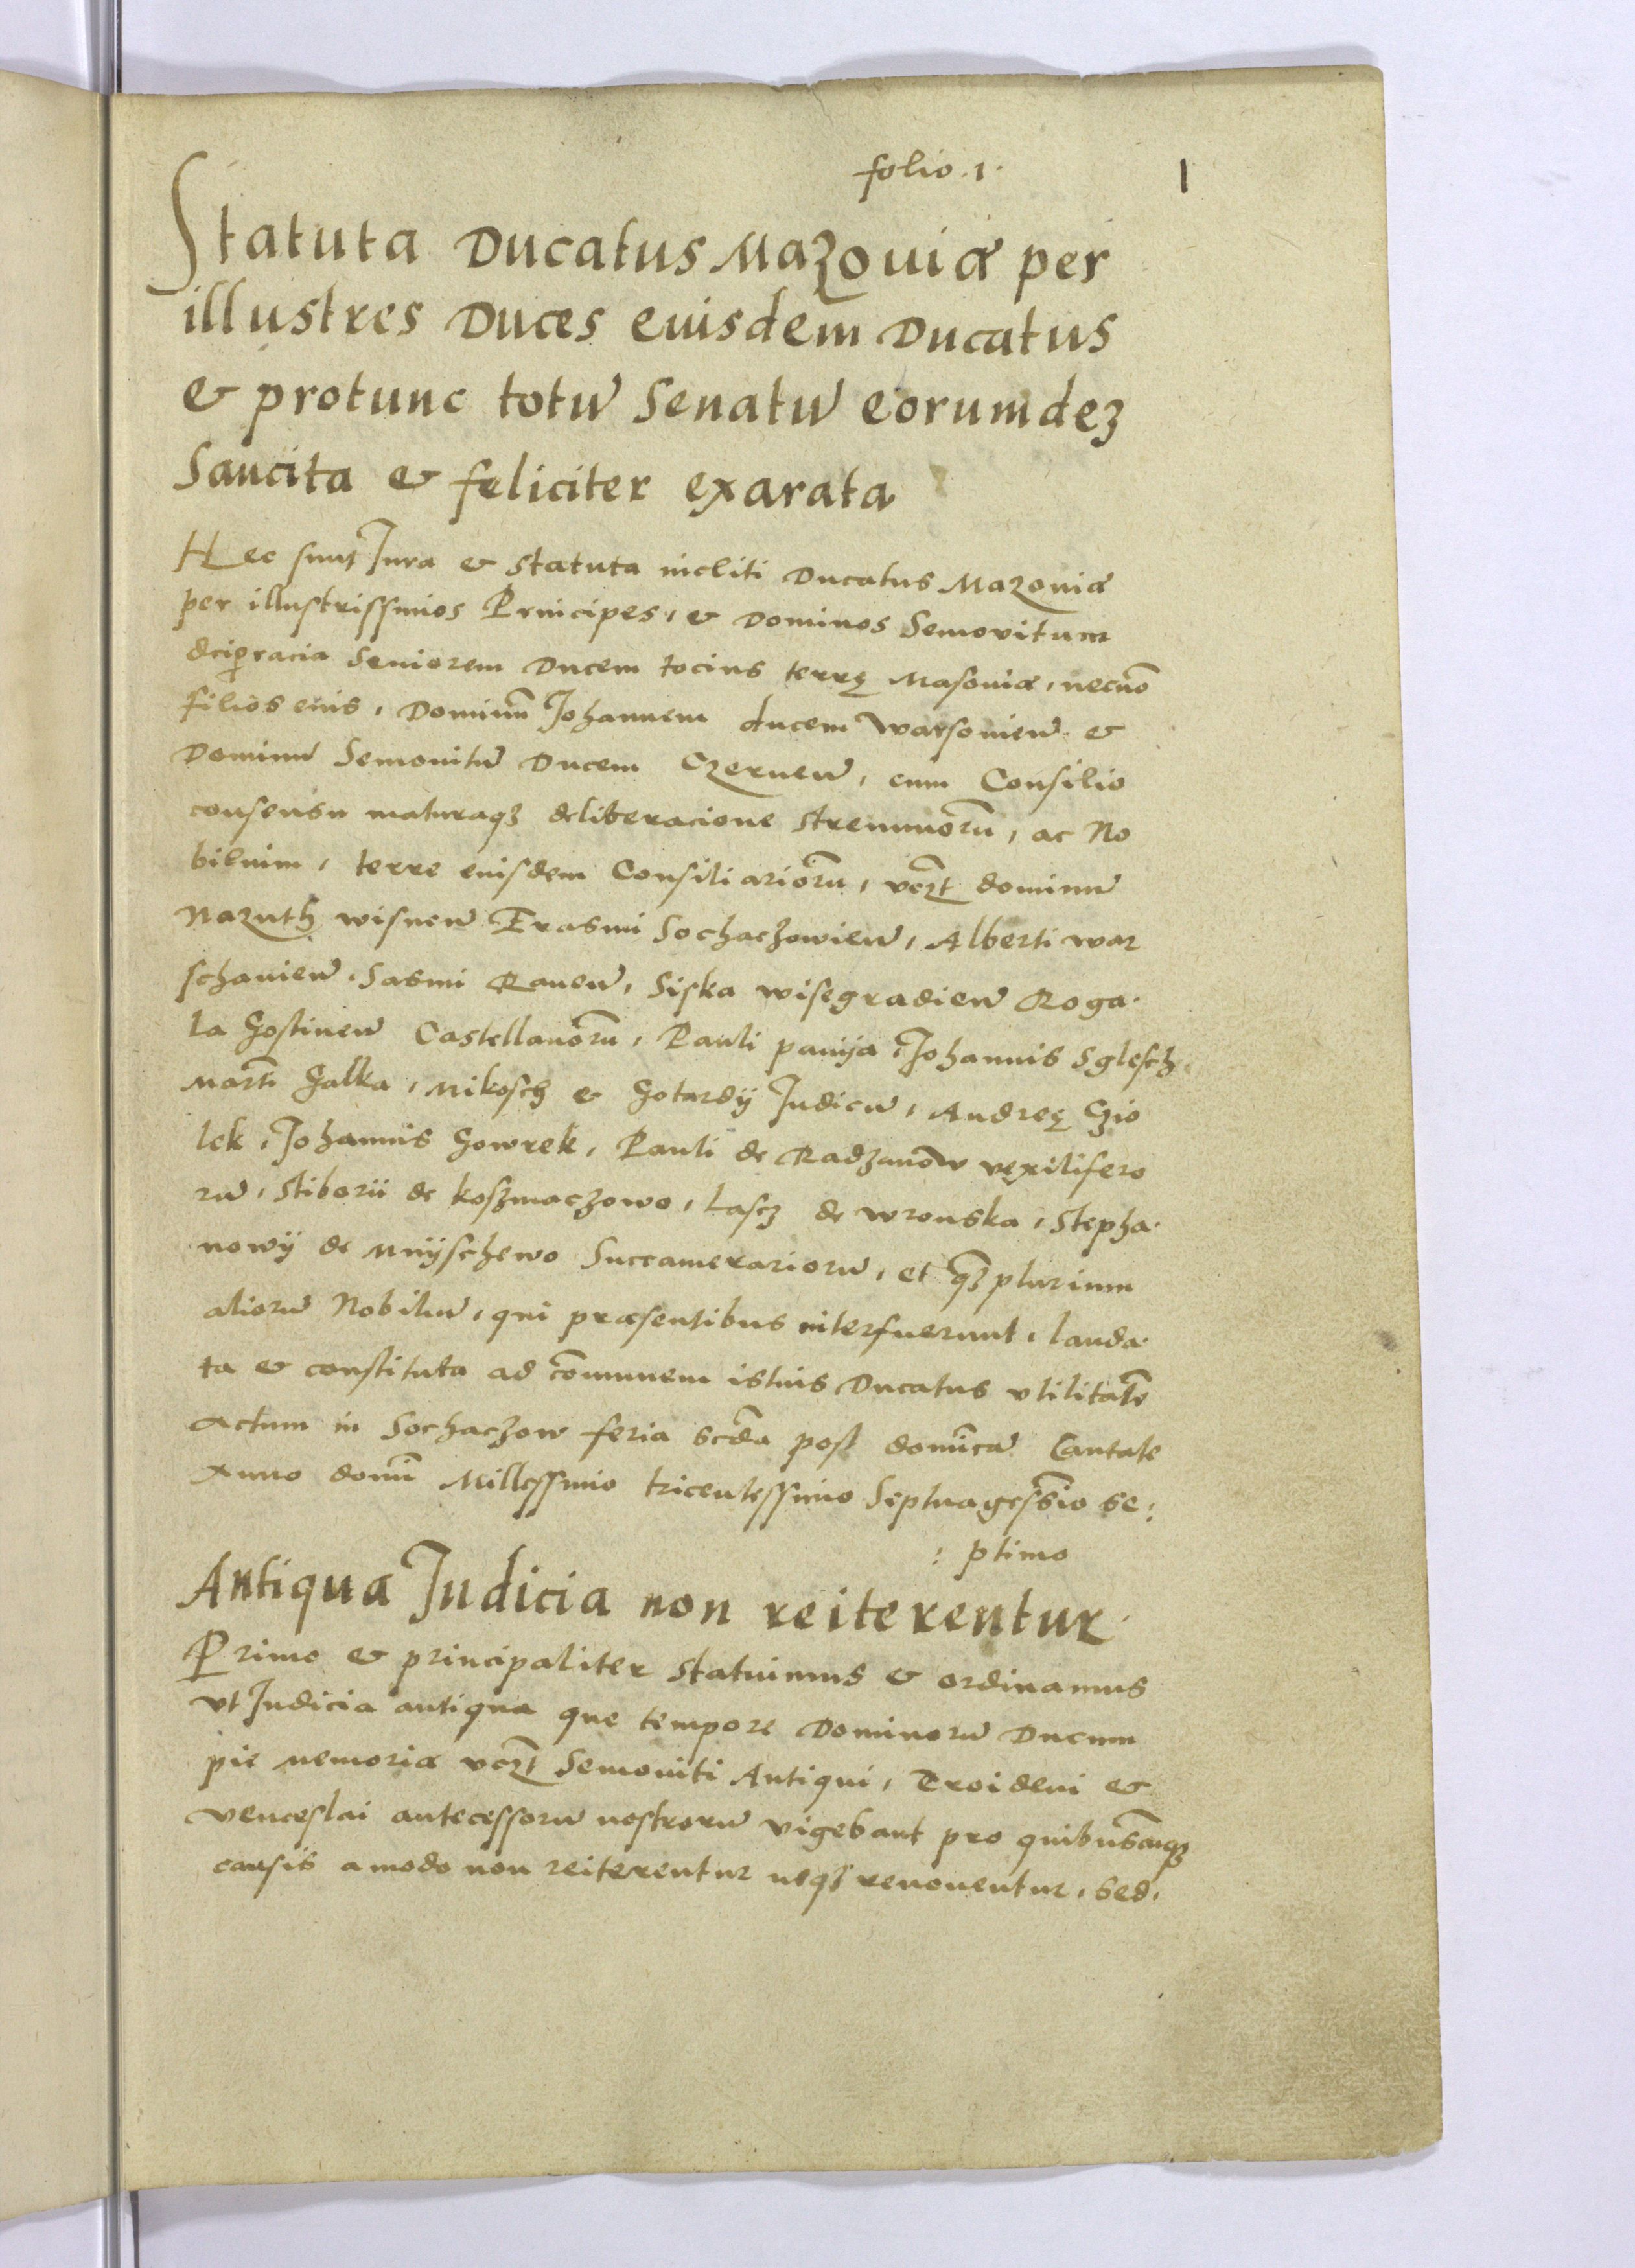 folio .1.
1
Statuta Ducatus Mazouiæ per
illustres Duces euisdem Ducatus
& protunc totũ Senatũ eorumdeʒ
Sancita & feliciter exarata
Hec sunt Iura & statuta incliti Ducatus Mazouiæ
per illustrissimos Principes, & Dominos Semovitum
dei gracia Seniorem Ducem tocius terrę Masouiæ, necnõ
filios euis, Dominũ Johannem ducem Warsouieñ &
Dominũ Semouitũ Ducem Czerneñ, cum Consilio
consensu maturaqʒ deliberacione strennuorũ, ac No
bilium, terre euisdem Consiliariorũ, vcʒt dominũ
Nazuth wisneñ Erasmi Sochaczowieñ, Alberti war
schauieñ. Sasmi Raueñ, Siska wisegradieñ Roga.
la Gostineñ Castellanorũ, Pauli pauija Johannis Sglesch.
Marti Galka, Mikosch & Gotardij Iudicũ, Andreę Czio
lek, Johannis Gowrek, Pauli de Radzanow vexilifero
rũ, Stiborii de koszmaczowo, Lascz de wronska, Stepha.
nowij de Mnijschewo Succamerariorũ, et qʒ plurium
aliorũ Nobiliũ, qui præsentibus interfuerunt, lauda.
ta & constituta ad cõmunem istius Ducatus vtilitatẽ
Actum in Sochaczow feria scda post dominicã Cantate
Anno domĩ Millessimo tricentessimo Septuagessĩo se:
: ptimo
Antiqua Iudicia non reiterentur.
Primo & principaliter statuimus & ordinamus
vt Iudicia antiqua que tempore Dominorũ Ducum
pie memoriæ vcʒt Semouiti Antiqui, Troideni &
venceslai antecessorũ nostrorũ vigebant pro quibuscũqʒ
causis amodo non reiterentur neqʒ renouentur, sed.